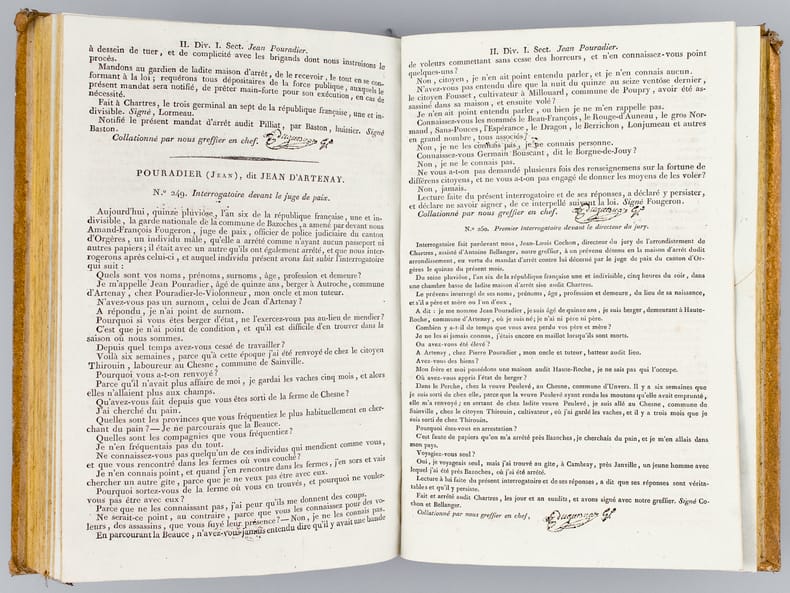 II. Div. I. Sect. Jean Pouradier.
à dessein de tuer, et de complicité avec les brigands dont nous instruisons le
procès.
Mandons au gardien de ladite maison d'arrêt, de le recevoir, le tout en se con-
formant à la loi; requérons tous dépositaires de la force publique, auxquels le
présent mandat sera notifié, de prêter main-forte pour son exécution, en cas de
nécessité.
Fait à Chartres, le trois germinal an sept de la république française, une et in-
divisible. Signé, Lormeau.
Notifié le présent mandat d'arrêt audit Pilliat, par Baston, huissier. Signé
Baston.
Collationné par nous greffier en chef.
POURADIER (JEAN), dit JEAN D'ARTENAY.
N.° 249. Interrogatoire devant le juge de paix.
Aujourd'hui, quinze pluviôse, l'an six de la république française, une et in-
divisible, la garde nationale de la commune de Bazoches, a amené par devant nous
Amand-François Fougeron, juge de paix, officier de police judiciaire du canton
d'Orgères, un individu mâle, qu'elle a arrêté comme n'ayant aucun passeport ni
autres papiers; il était avec un autre qu'ils ont également arrêté, et que nous inter-
rogerons après celui-ci, et auquel individu présent avons fait subir l'interrogatoire
qui suit :
Quels sont vos némis, prénoms, surnoms, âge, profession et demeure?
Je m'appelle Jean Pouradier, âgé de quinze ans, berger à Autroche, commune
d'Artenay, chez Pouradier-le-Violonneur, mon oncle et mon tuteur.
N'avez-vous pas un surnom, celui de Jean d'Artenay?
A répondu, je n'ai point de surnom.
Pourquoi si vous êtes berger d'état, ne l'exercez-vous pas au-lieu de mendier?
C'est que je n'ai point de condition, et qu'il est difficile d'en trouver dans la
saison où nous sommes.
Depuis quel temps avez-vous cessé de travailler?
Voilà six semaines, parce qu'à cette époque j'ai été renvoyé de chez le citoyen
Thirouin, laboureur au Chesne, commune de Sainville.
Pourquoi vous a-t-on renvoyé?
Parce qu'il n'avait plus affaire de moi, je gardai les vaches cinq mois, et alors
elles n'allaient plus aux champs.
Qu'avez-vous fait depuis que vous êtes sorti de la ferme de Chesne?
J'ai cherché du pain.
Quelles sont les provinces que vous fréquentiez le plus habituellement en cher-
chant du pain? — Je ne parcourais que la Beauce.
Quelles sont les compagnies que vous fréquentiez?
Je n'en fréquentais pas du tout.
Ne connaissez-vous pas quelqu'un de ces individus qui mendient comme vous,
et que vous rencontrez dans les fermes où vous couché?
Je n'en connais point, et quand j'en rencontre dans les fermes, j'en sors et vais
chercher un autre gite, parce que je ne veux pas être avec eux.
Pourquoi sortez-vous de la ferme où vous en trouvés, et pourquoi ne voulez-
vous pas être avec eux?
Parce que ne les connaissant pas, j'ai peur qu'ils me donnent des coups.
Ne serait-ce point, au contraire, parce que vous les connaissez pour des vo-
leurs, des assassins, que vous fuyé leur présence? — Non, je ne les connais pas.
En parcourant la Beauce, n'avez-vous jamais entendu dire qu'il y avait une bande
II. Div. I. Sect. Jean Pouradier.
de voleurs commettant sans cesse des horreurs, et n'en connaissez-vous point
quelques-uns?
Non, citoyen, je n'en ait point entendu parler, et je n'en connais aucun.
N'avez-vous pas entendu dire que la nuit du quinze au seize ventôse dernier,
le citoyen Fousset, cultivateur à Millouard, commune de Poupry, avoir été as-
sassiné dans sa maison, et ensuite volé?
Je n'en ait point entendu parler, ou bien je ne m'en rappelle pas.
Connaissez-vous les nommés le Beau-François, le Rouge-d'Auneau, le gros Nor-
mand, Sans-Pouces, l'Espérance, le Dragon, le Berrichon, Lonjumeau et autres
en grand nombre, tous associés?
Non, je ne les connais pas, je ne connais personne.
Connaissez-vous Germain Bouscant, dit le Borgne-de-Jouy?
Non, je ne le connais pas.
Ne vous a-t-on pas demandé plusieurs fois des renseignemens sur la fortune de
différens citoyens, et ne vous a-t-on pas engagé de donner les moyens de les voler?
Non, jamais.
Lecture faite du présent interrogatoire et de ses réponses, a déclaré y persister,
et déclare ne savoir signer, de ce interpellé suivant la loi. Signé Fougeron.
Collationné par nous greffier en chef.
N.° 250. Premier interrogatoire devant le directeur du jury.
Interrogatoire fait pardevant nous, Jean-Louis Cochon, directeur du jury de l'arrondissement de
Chartres, assisté d'Antoine Bellanger, notre greffier, à un prévenu détenu en la maison d'arrêt dudit
arrondissement, en vertu du mandat d'arrêt contre lui décerné par le juge de paix du canton d'Or-
gères le quinze du présent mois.
Du seize pluviôse, l'an six de la république française une et indivisible, cinq heures du soir, dans
une chambre basse de ladite maison d'arrêt sise audit Chartres.
Le prévenu interrogé de ses noms, prénoms, âge, profession et demeure, du lieu de sa naissance,
et s'il a père et mère ou l'un d'eux,
A dit : je me nomme Jean Pouradier, je suis âgé de quinze ans, je suis berger, demeurant à Haute-
Roche, commune d'Artenay, où je suis né; je n'ai ni père ni père.
Combien y a-t-il de temps que vous avez perdu vos père et mère?
Je ne les ai jamais connus, j'étais encore en maillot lorsqu'ils sont morts.
Ou avez-vous été élevé?
A Artenay, chez Pierre Pouradier, mon oncle et tuteur, batteur audit lieu.
Avez-vous des biens?
Mon frère et moi possédons une maison audit Haute-Roche, je ne sais pas qui l'occupe.
Où avez-vous appris l'état de berger?
Dans le Perche, chez la veuve Peulevé, au Chesne, commune d'Unvers. Il y a six semaines que
je suis sorti de chez elle, parce que la veuve Peulevé ayant rendu les moutons qu'elle avait emprunté,
elle m'a renvoyé; en sortant de chez ladite veuve Peulevé, je suis allé au Chesne, commune de
Sainville, chez le citoyen Thirouin, cultivateur, où j'ai gardé les vaches, et il y a trois mois que je
suis sorti de chez Thirouin.
Pourquoi êtes-vous en arrestation?
C'est faute de papiers qu'on m'a arrêté près Bazoches, je cherchais du pain, et je m'en allais dans
mon pays.
Voyagiez-vous seul?
Oui, je voyageais seul, mais j'ai trouvé au gîte, à Cambray, près Janville, un jeune homme avec
lequel j'ai été près Bazoches, où j'ai été arrêté.
Lecture à lui faite du présent interrogatoire et de ses réponses, a dit que ses réponses sont vérita-
tables et qu'il y persiste.
Fait et arrêté audit Chartres, les jour et an susdits, et avons signé avec notre greffier. Signé Co-
chon et Bellanger.
Collationné par nous greffier en chef,